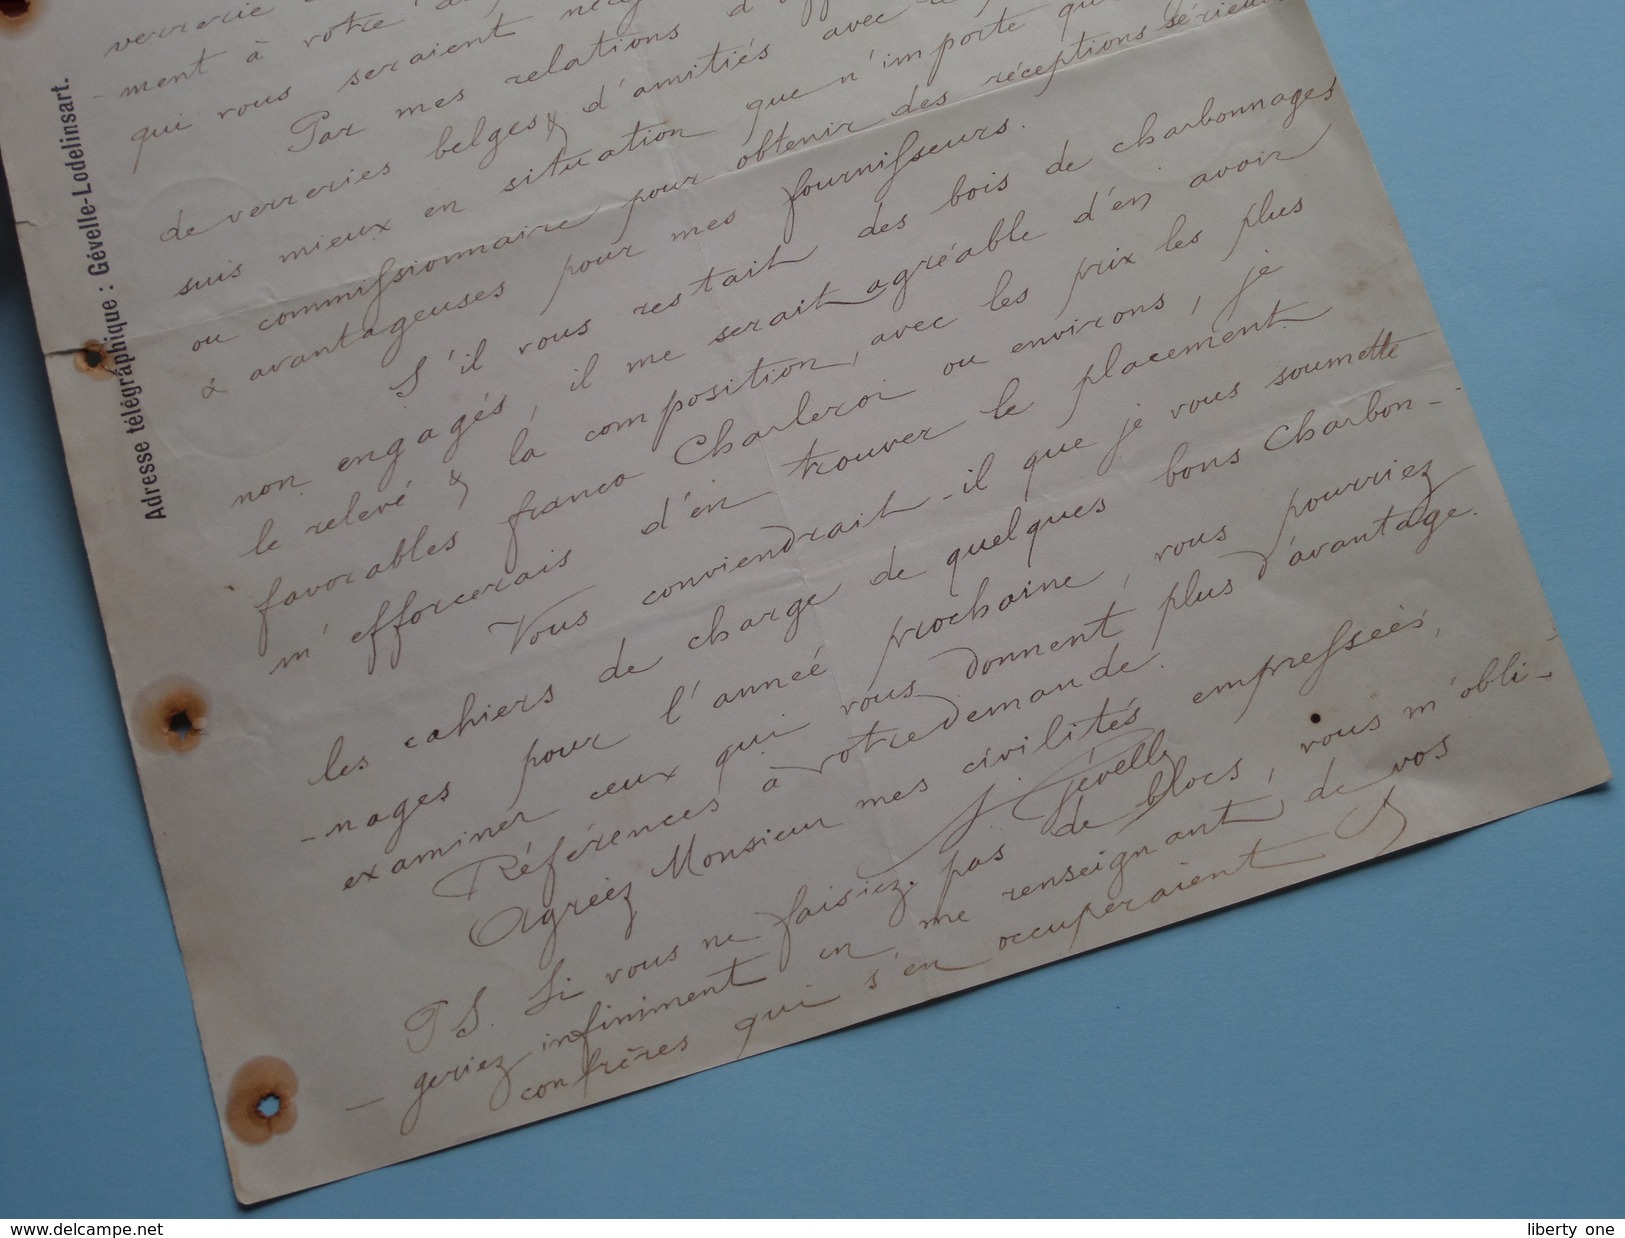 verrerie
ment à votre
qui vous seraient
Par mes relations
de verreries belges & d'amitiés avec
suis mieux en situation que n'importe
ou commissionnaire pour obtenir des réceptions sérieuses
& avantageuses pour mes fournisseurs.
S'il vous restait des bois de charbonnages
non engagés, il me serait agréable d'en avoir
le relevé & la composition, avec les prix les plus
favorables franco Charleroi ou environs, je
m'efforcerais d'en trouver le placement.
Vous conviendrait-il que je vous soumette
les cahiers de charge de quelques bons Charbon-
-nages pour l'année prochaine, vous pourriez
examiner ceux qui vous donnent plus d'avantage.
Références à votre demande.
Agréez Monsieur mes civilités empressées,
J. Gévelle
PS. Si vous ne faisiez pas de blocs, vous m'obli-
-geriez infiniment en me renseignant de vos
confrères qui s'en occuperaient
Adresse télégraphique : Gévelle-Lodelinsart.
www.delcampe.net
liberty one